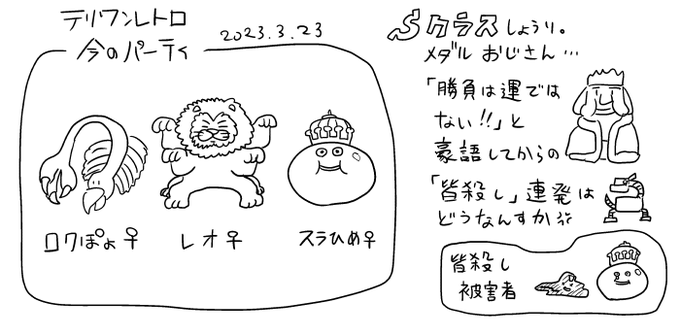 テリワンレトロ
今のパーティ
2023.3.23
ロクぽよ♀
レオ♀
スラひめ♀
Sクラスしょうり。
メダルおじさん…
「勝負は運では
ない!!」と
豪語してからの
「皆殺し」連発は
どうなんすか💢
皆殺し
被害者